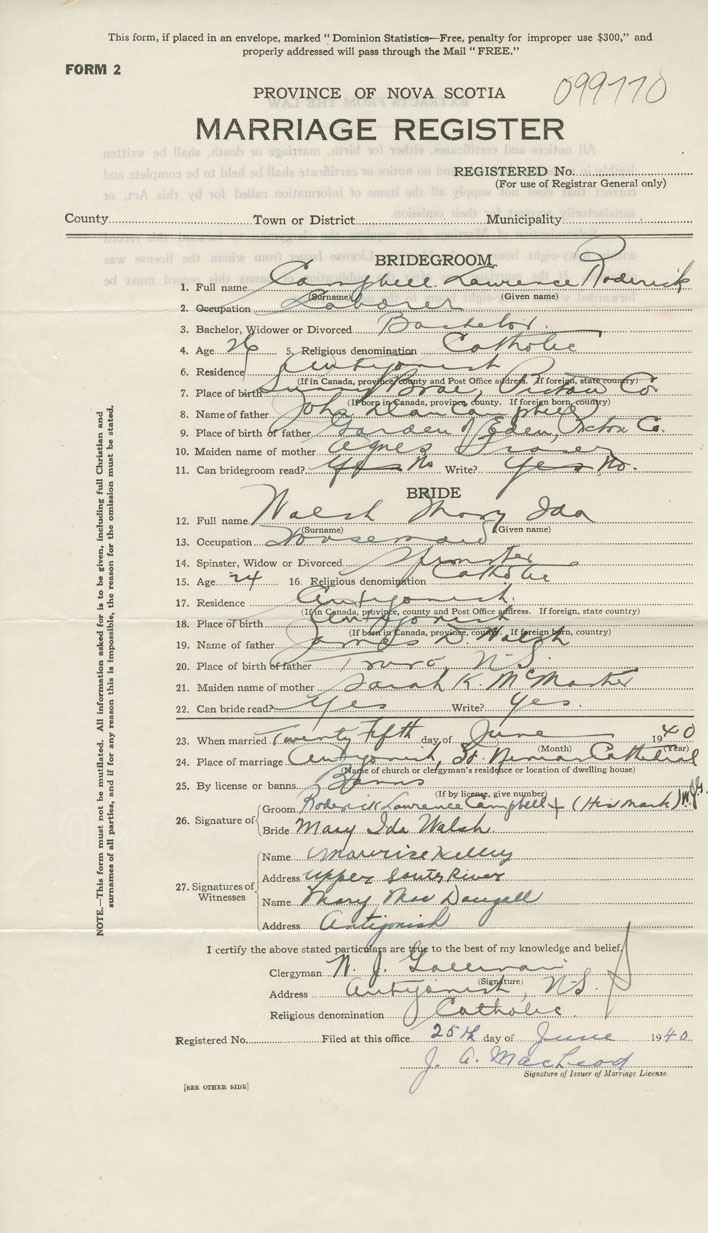 This form, if placed in an envelope, marked "Dominion Statistics—Free, penalty for improper use $300," and
properly addressed will pass through the Mail "FREE."
FORM 2
099770
PROVINCE OF NOVA SCOTIA
MARRIAGE REGISTER
REGISTERED No.
(For use of Registrar General only)
County Town or District Municipality
BRIDEGROOM
1. Full name Campbell Lawrence Roderick
(Surname) (Given name)
2. Occupation Laborer
3. Bachelor, Widower or Divorced Bachelor
4. Age 26 5. Religious denomination Catholic
6. Residence Antigonish
(If in Canada, province, county and Post Office address. If foreign, state country)
7. Place of birth Sunny Brae, Pictou Co
(If born in Canada, province, county. If foreign born, country)
8. Name of father John Dan Campbell
9. Place of birth of father Garden of Eden, Pictou Co.
10. Maiden name of mother Agnes Fraser
11. Can bridegroom read? Yes No Write? Yes No.
BRIDE
12. Full name Walsh Mary Ida
(Surname) (Given name)
13. Occupation Housemaid
14. Spinster, Widow or Divorced Spinster
15. Age 24 16. Religious denomination Catholic
17. Residence Antigonish
(If in Canada, province, county and Post Office address. If foreign, state country)
18. Place of birth Antigonish
(If born in Canada, province, county. If foreign born, country)
19. Name of father James D. Walsh
20. Place of birth of father Truro, N-S.
21. Maiden name of mother Sarah K. McMaster
22. Can bride read? Yes Write? Yes.
23. When married Twenty Fifth day of June 1940
(Month) (Year)
24. Place of marriage Antigonish, St. Ninian Cathedral
(Name of church or clergyman's residence or location of dwelling house)
25. By license or banns Banns
(If by license, give number)
26. Signature of
Groom Roderick Lawrence Campbell + (His Mark)
Bride Mary Ida Walsh
27. Signatures of Witnesses
Name Maurice Kelley
Address Upper South River
Name Mary Mac Dougall
Address Antigonish
I certify the above stated particulars are true to the best of my knowledge and belief.
Clergyman
(Signature)
Address Antigonish, N-S.
Religious denomination Catholic
Registered No. Filed at this office 25th day of June 1940
J. A. MacLeod
Signature of Issuer of Marriage License.
[SEE OTHER SIDE]
NOTE.—This form must not be mutilated. All information asked for is to be given, including full Christian and
surnames of all parties, and if for any reason this is impossible, the reason for the omission must be stated.